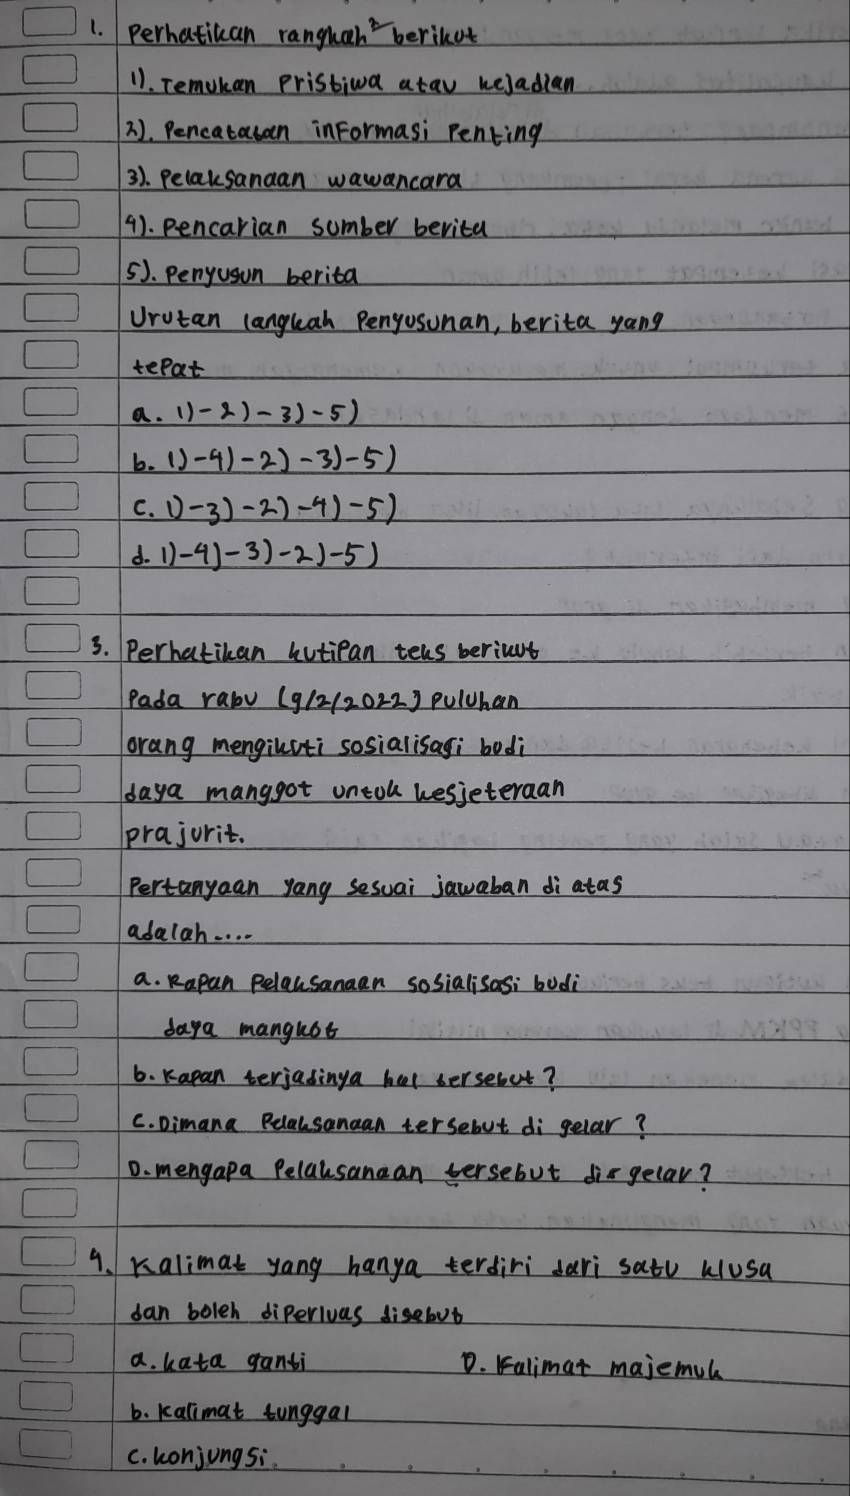 1. Perhatikan rangkah² berikut
1). Temukan Pristiwa atau kejadian
2). Pencatatan informasi Penting
3). Pelaksanaan wawancara
4). Pencarian sumber berita
5). Penyusun berita
Urutan langkah Penyusunan, berita yang
tepat
a. 1) - 2) - 3) - 5)
b. 1) - 4) - 2) - 3) - 5)
c. 1) - 3) - 2) - 4) - 5)
d. 1) - 4) - 3) - 2) - 5)
3. Perhatikan kutipan teks berikut
Pada rabu (9/2/2022) Puluhan
orang mengikuti sosialisasi budi
daya manggot untuk kesjeteraan
prajurit.
Pertanyaan yang sesuai jawaban di atas
adalah....
a. Kapan Pelaksanaan sosialisasi budi
daya mangkot
b. Kapan terjadinya hal tersebut?
c. Dimana Pelaksanaan tersebut di gelar?
D. mengapa Pelaksanaan tersebut di gelar?
4. Kalimat yang hanya terdiri dari satu klusa
dan boleh diperluas disebut
a. kata ganti D. Kalimat majemuk
b. Kalimat tunggal
c. konjungsi.